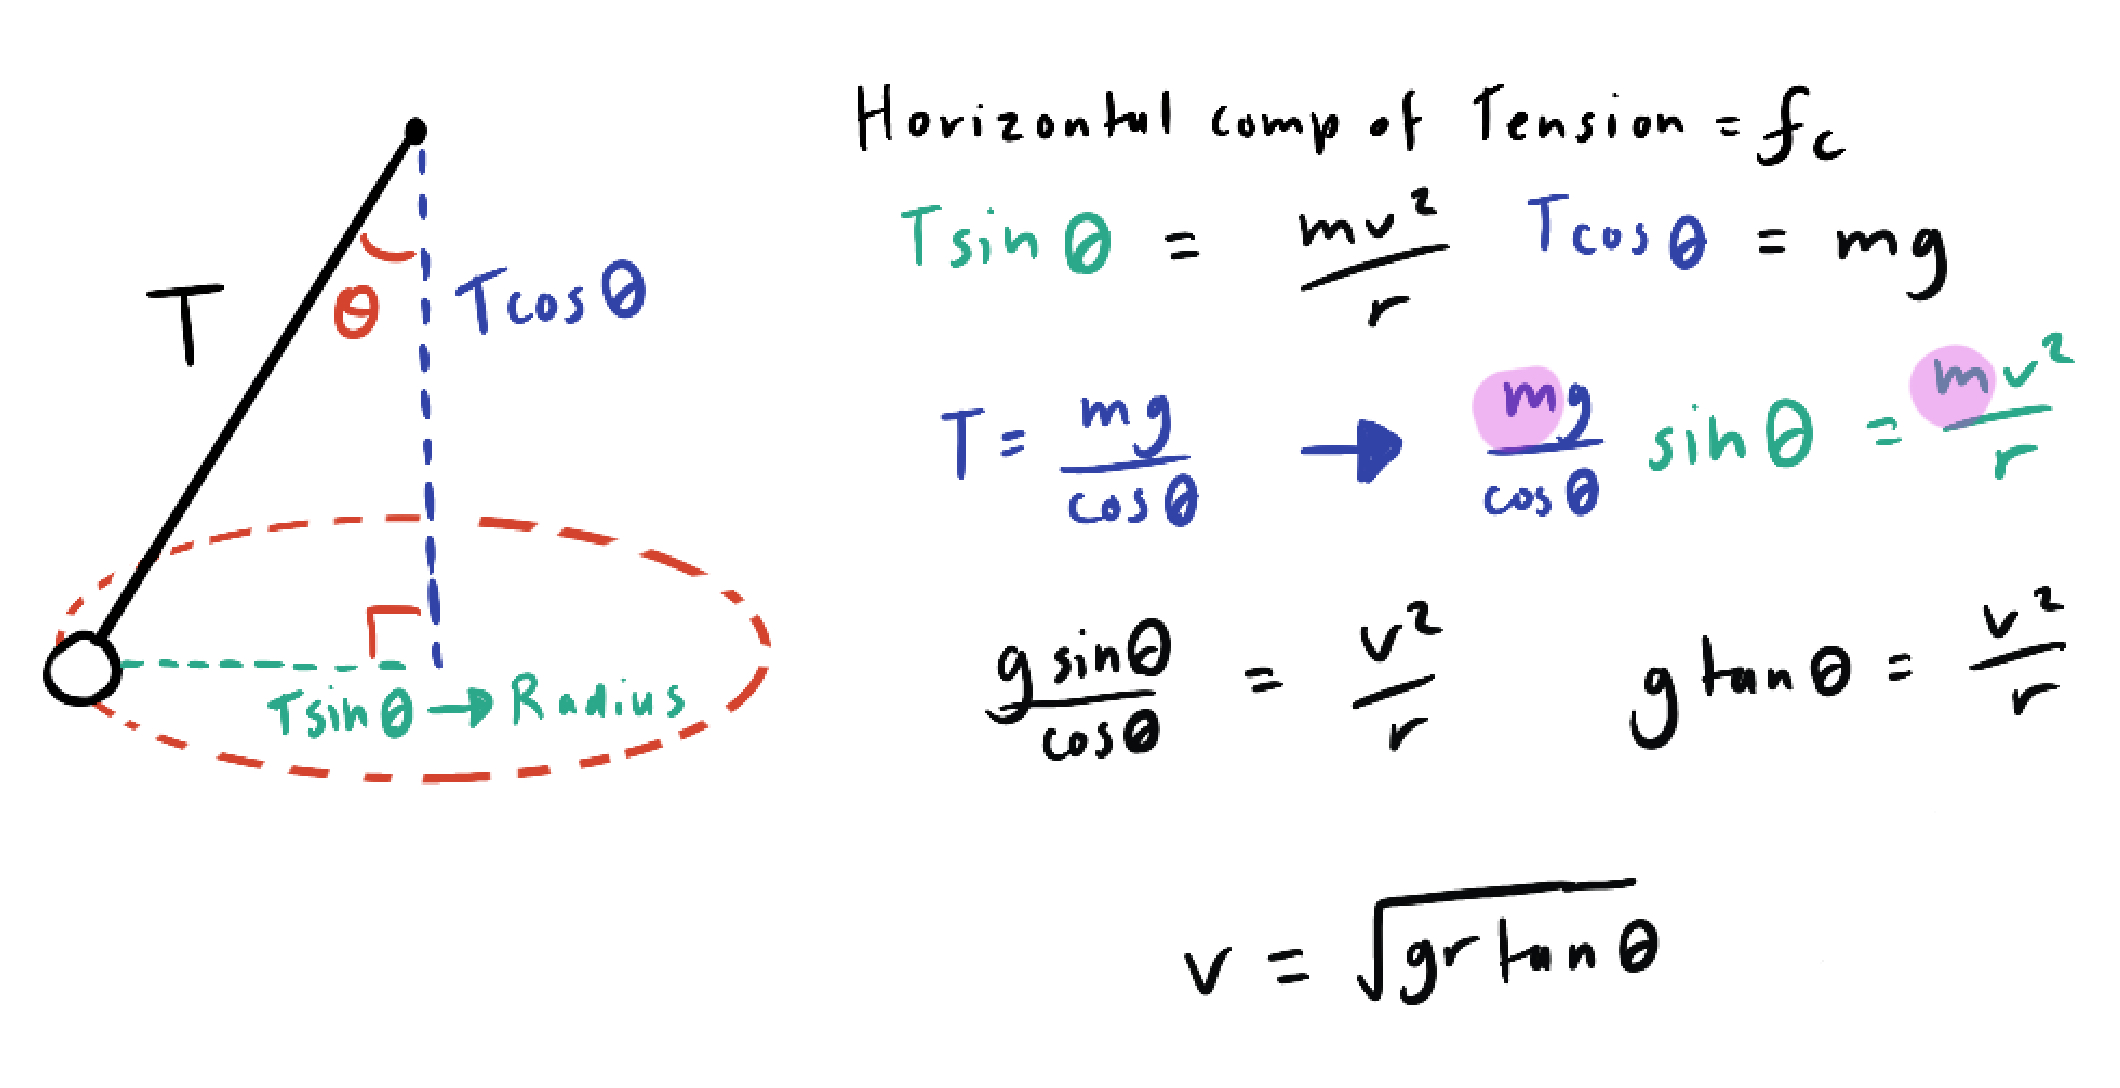 T
θ
Tcosθ
Tsinθ → Radius
Horizontal comp of Tension = fc
Tsinθ = mv²/r Tcosθ = mg
T = mg/cosθ → mg/cosθ sinθ = mv²/r
gsinθ/cosθ = v²/r g tanθ = v²/r
v = √gr tanθ